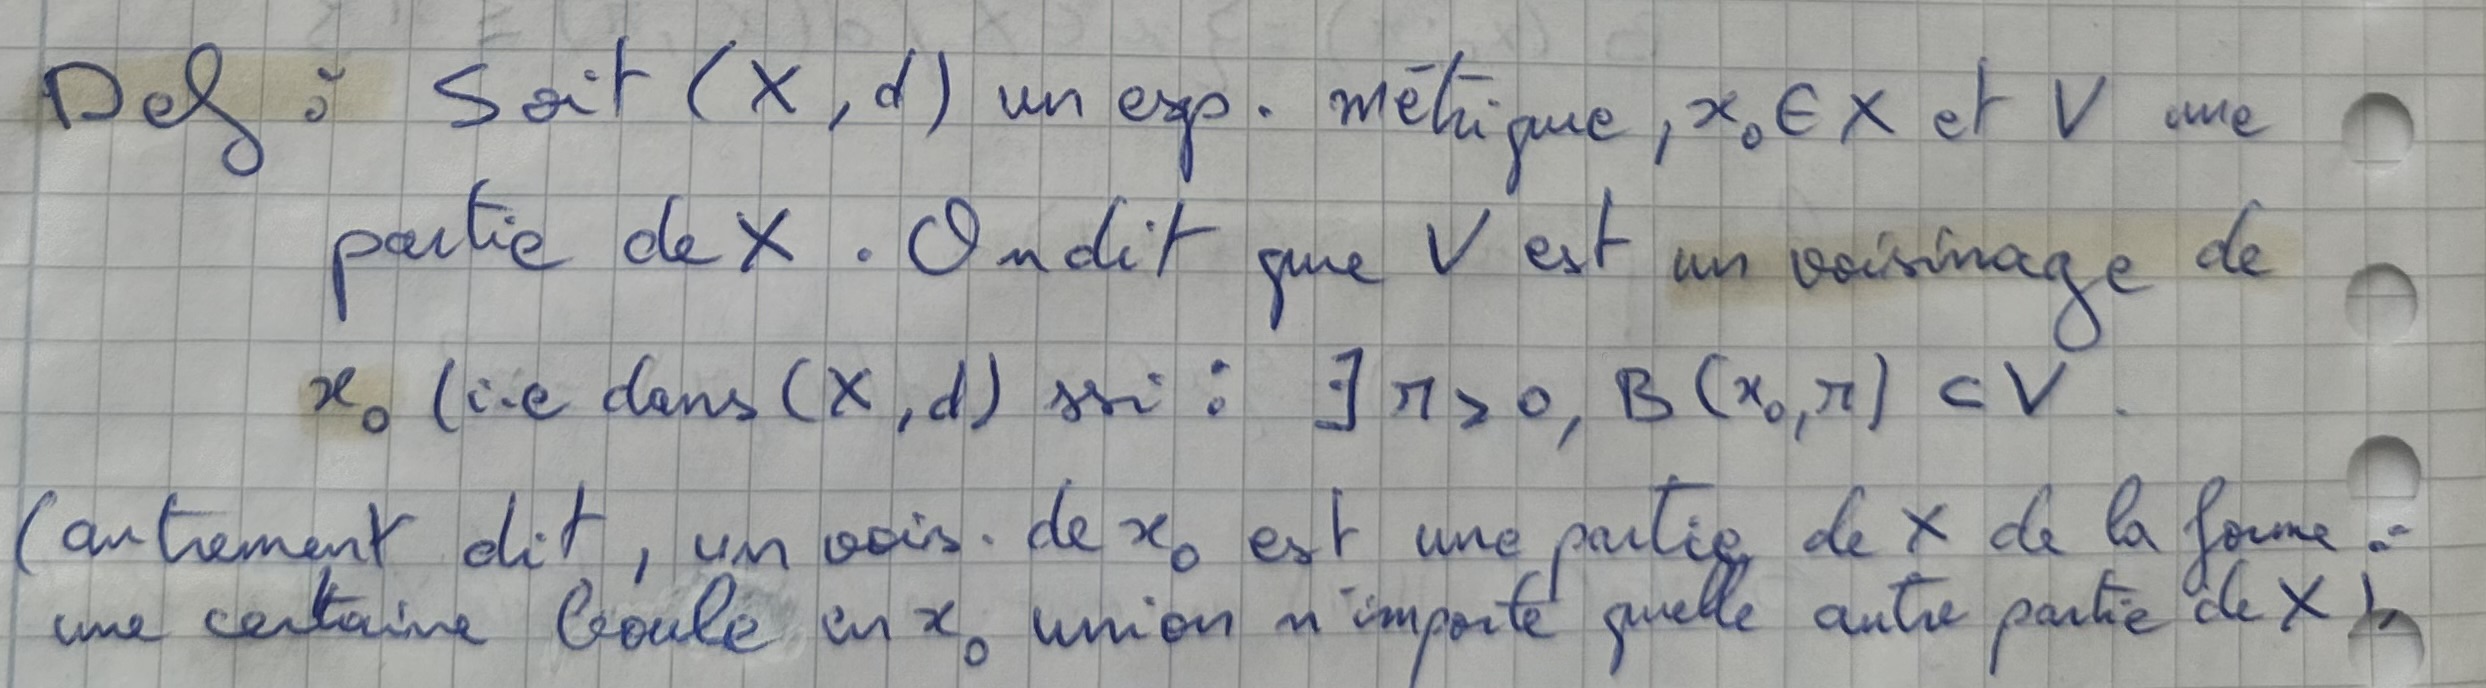 Def : Soit (X, d) un esp. métrique, x₀ ∈ X et V une
partie de X. On dit que V est un voisinage de
x₀ (i.e dans (X, d) ssi : ∃ r > 0, B(x₀, r) ⊂ V.
(autrement dit, un vois. de x₀ est une partie de X de la forme :
une certaine boule en x₀ union n'importe quelle autre partie de X)